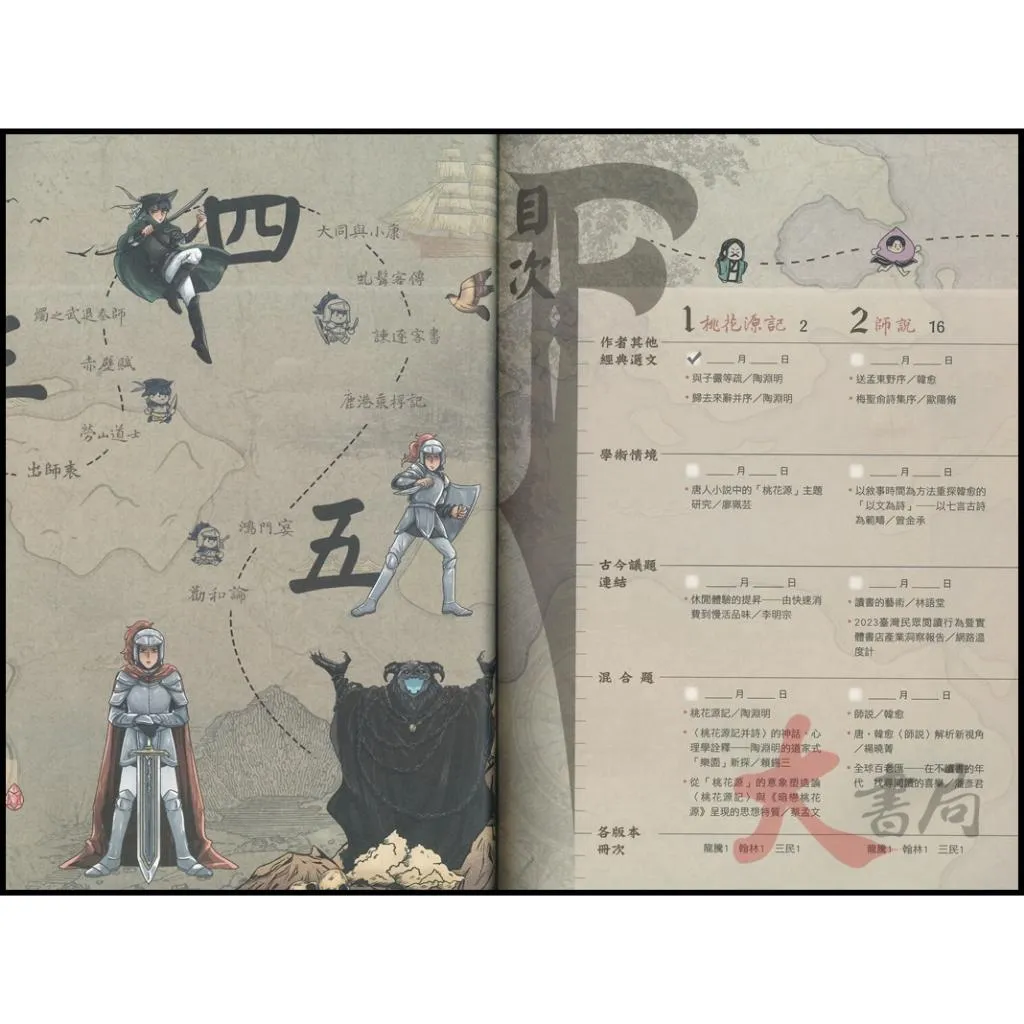 四
大同與小康
虬髯客傳
諫逐客書
鹿港乘桴記
燭之武退秦師
赤壁賦
勞山道士
出師表
五
鴻門宴
勸和論
目次
1 桃花源記 2
2 師說 16
作者其他
經典選文
月 日
•與子儼等疏／陶淵明
•歸去來辭并序／陶淵明
月 日
•送孟東野序／韓愈
•梅聖俞詩集序／歐陽脩
學術情境
月 日
•唐人小說中的「桃花源」主題
研究／廖珮芸
月 日
•以敘事時間為方法重探韓愈的
「以文為詩」——以七言古詩
為範疇／曾金承
古今議題
連結
月 日
•休閒體驗的提昇——由快速消
費到慢活品味／李明宗
月 日
•讀書的藝術／林語堂
•2023臺灣民眾閱讀行為暨實
體書店產業洞察報告／網路溫
度計
混合題
月 日
•桃花源記／陶淵明
•〈桃花源記并詩〉的神話、心
理學詮釋——陶淵明的道家式
「樂園」新探／賴錫三
•從「桃花源」的意象塑造論
〈桃花源記〉與《暗戀桃花
源》呈現的思想特質／蔡孟文
月 日
•師說／韓愈
•唐．韓愈〈師說〉解析新視角
／楊曉菁
•全球百老匯——在不讀書的年
代 找尋閱讀的喜樂／潘彥君
各版本
冊次
龍騰1 翰林1 三民1
龍騰1 翰林1 三民1
大書局